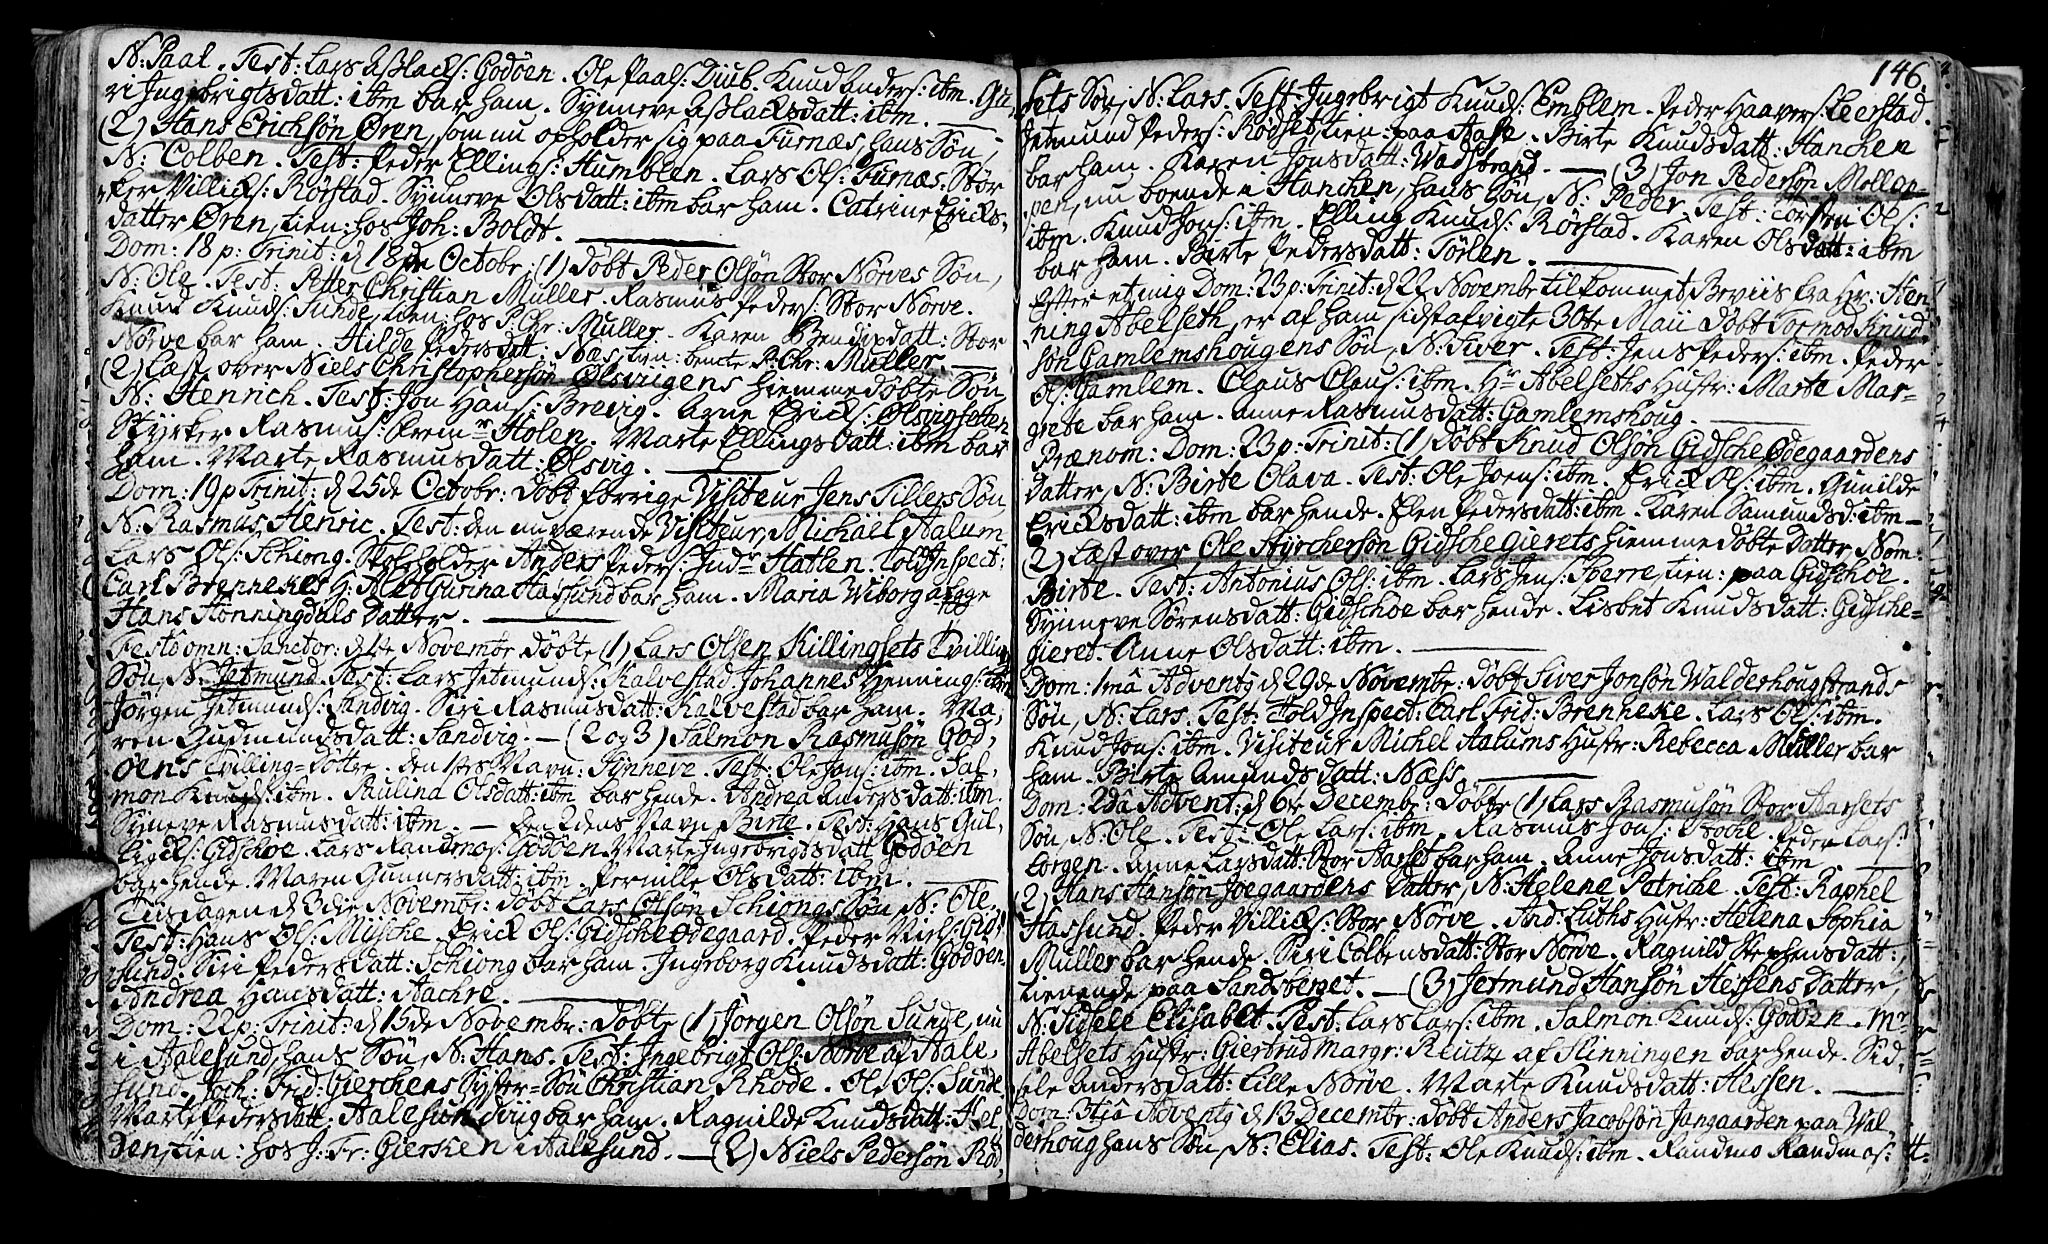 N: Paal. Test: Lars Aslacks: Godøen. Ole Paals: Diub. Knud Anders: ibm.
ri Ingebrigtsdatt: ibm bar ham. Synneve Aslacksdatt: ibm.
(2) Hans Erichsøn Øren, som nu opholder sig paa Furnæs, hans Søn,
N: Colben. Test: Peder Ellings: Humblen. Lars Ols: Furnæs. Stør
ker Villicks: Rørstad. Synneve Olsdatt: ibm bar ham. Catrine Ericks-
datter Øren, tien: hos Joh: Boldt.
Dom: 18 p: Trinit: d 18de Octobr: (1) døbt Peder Olsøn Stor Nørves Søn,
N: Ole. Test: Petter Christian Müller. Rasmus Peders: Stor Nørve.
Knud Knuds: Sunde, tien: hos P: Chr: Müller. Karen Bendixdatt: Stor
Nørve bar ham. Hilde Pedersdatt: Næs, tien: P: Chr: Müller.
(2) Læst over Niels Christophersøn Ølsvigens hiemmedøbte Søn
N: Henrich. Test: Jon Hans: Brevig. Erics: Ølsvigsetten
Styrker Rasmus: Holen. Marte Ellingsdatt: ibm bar
ham. Marte Rasmusdatt: Ølsvig.
Dom: 19 p Trinit: d 25de Octobr: døbt forrige Visiteur Jens Tillers Søn
N: Rasmus Henric. Test: den nuværende Visiteur, Michael Aalum
Lars Ols: Schiong. Skoleholder Anders Peders: Hatlen. Told Inspect:
Carl Brennekes H: Gurina Hassund bar ham. Maria Wiborg
Hans Hønningdals Datter.
Fest: omn: Sanctor: d 1te Novembr døbte (1) Lars Olsen Killingsets Tvilling
Søn, N: Jetmund. Test: Lars Jetmunds: Kalvestad Johannes Hennings: ibm
Jørgen Jetmunds: Sandvig. Siri Rasmusdatt: Kalvestad bar ham. Ma-
ren Gudmundsdatt: Sandvig. — (2 og 3) Salmon Rasmusøn God-
øens Tvilling-Døttre. den 1stes Navn: Synneve. Test: Ole Jons: ibm. Sal-
mon Knuds: ibm. Paulina Olsdatt: ibm bar hende. Andrea Andersdatt: ibm.
Synneve Rasmusdatt: ibm. — den 2dens Navn Birte. Test: Hans Gul-
licks: Gidschøe. Lars Randmos: Godøen. Marte Ingebrigtsdatt Godøen
bar hende. Maren Gunnersdatt: ibm. Pernille Olsdatt: ibm.
Tiisdagen d 3die Novembr: døbt Lars Olsøn Schiongs Søn N: Ole.
Test: Hans Ols: Mische. Erick Ols: Gidsche Ødegaard. Peder Niels:
sund. Siri Pedersdatt: Schiong bar ham. Ingeborg Knudsdatt: Godøen.
Andrea Hansdatt: Aachre.
Dom: 22 p: Trinit: d 15de Novembr: Døbte (1) Jørgen Olsøn Sunde, nu
i Aalesund, hans Søn, N: Hans. Test: Ingebrigt Ols: Nørve af Aale-
sund. Joch: Frid: Gierckens Syster-Søn Christian Rhode. Ole Ols: Sunde
Marte Pedersdatt: Aalesund bar ham. Ragnilde Knudsdatt: Hes
den tien: hos J: Fr: Giercken i Aalesund. — (2) Niels Pedersøn Rød-
146.
sets Søn, N: Lars. Test: Ingebrigt Knuds: Emblem. Peder Haavers: Leerstad.
Jetmund Peders: Rødset, tien: paa Aase. Birte Knudsdatt: Hanchen
bar ham. Karen Jonsdatt: Wadstrand. — (3) Jon Pedersøn Møllen
pen, nu boende i Hanchen, hans Søn, N: Peder. Test: Torsten Ols:
ibm. Knud Jons: ibm. Elling Knuds: Rørstad. Karen Olsdatt: ibm
bar ham. Birte Pedersdatt: Tørlen.
Efter et mig Dom: 23 p: Trinit: d 22 Novembr tilkommet Beviis fra Hr: Hen
ning Abelseth, er af ham sidstafvigte 30te Maii døbt Tormod Knud
søn Gamlemshougens Søn, N: Siver. Test: Jens Peders: ibm. Peder
Ols: Gamlem. Claus Claus: ibm. Hr Abelseths Hustr: Marte Mar-
grete bar ham. Anne Rasmusdatt: Gamlemshoug.
Prænom: Dom: 23 p: Trinit: (1) døbt Knud Olsøn Gidsche Ødegaardens
Datter, N: Birte Olava. Test: Ole Joens: ibm. Erick Ols: ibm. Gunilde
Ericksdatt: ibm bar hende. Elen Pedersdatt: ibm. Karen Samundsd: ibm—
(2) Læst over Ole Styrchersøn Gidschegierets hiemmedøbte Datter Nom:
Birte. Test: Antonius Ols: ibm. Lars Jens: Sperre, tien: paa Gidschøe.
Synneve Sørensdatt: Gidschøe bar hende. Lisbet Knudsdatt: Gidsche-
gieret. Anne Olsdatt: ibm.
Dom: 1mâ Advent: d 29de Novembr: døbt Siver Jonsøn Walderhougstrands
Søn, N: Lars. Test: Told Inspect: Carl Frid: Brenneke. Lars Ols: ibm.
Knud Jons: ibm. Visiteur Michel Aalums Hustr: Rebecca Müller bar
ham. Birte Amundsdatt: Næss.
Dom: 2dâ Advent: d 6te Decembr: døbte (1) Lars Rasmusøn Stor Aarsets
Søn, N: Ole. Test: Ole Lars: ibm. Rasmus Jons: Peder Lars:
Torgen. Anne Larsdatt: Stor Aarset bar ham. Anne Jonsdatt: ibm
(2) Hans Hansøn Joegaardens Datter, N: Helene Petriche. Test: Raphel
Hassund. Peder Villicks: Stor Nørve. And: Luths Hustr: Helena Sophia
Müller bar hende. Siri Colbensdatt: Stor Nørve. Ragnild Stephensdatt:,
tienende paa Sandsberget. — (3) Jetmund Hansøn Hessens Datter,
N: Sidsele Elisabet. Test: Lars Lars: ibm. Salmon Knuds: Godøen. Mr
Abelsets Hustr: Giertrud Margr: Reutz af Slinningen bar hende. Sid-
sele Andersdatt: Lille Nørve. Marte Knudsdatt: Hessen.
Dom: 3tiâ Advent: d 13 Decembr: døbt Anders Jacobsøn Jangaarden paa Wal-
derhoug hans Søn, N: Elias. Test: Ole Knuds: ibm. Randmo Randmos: